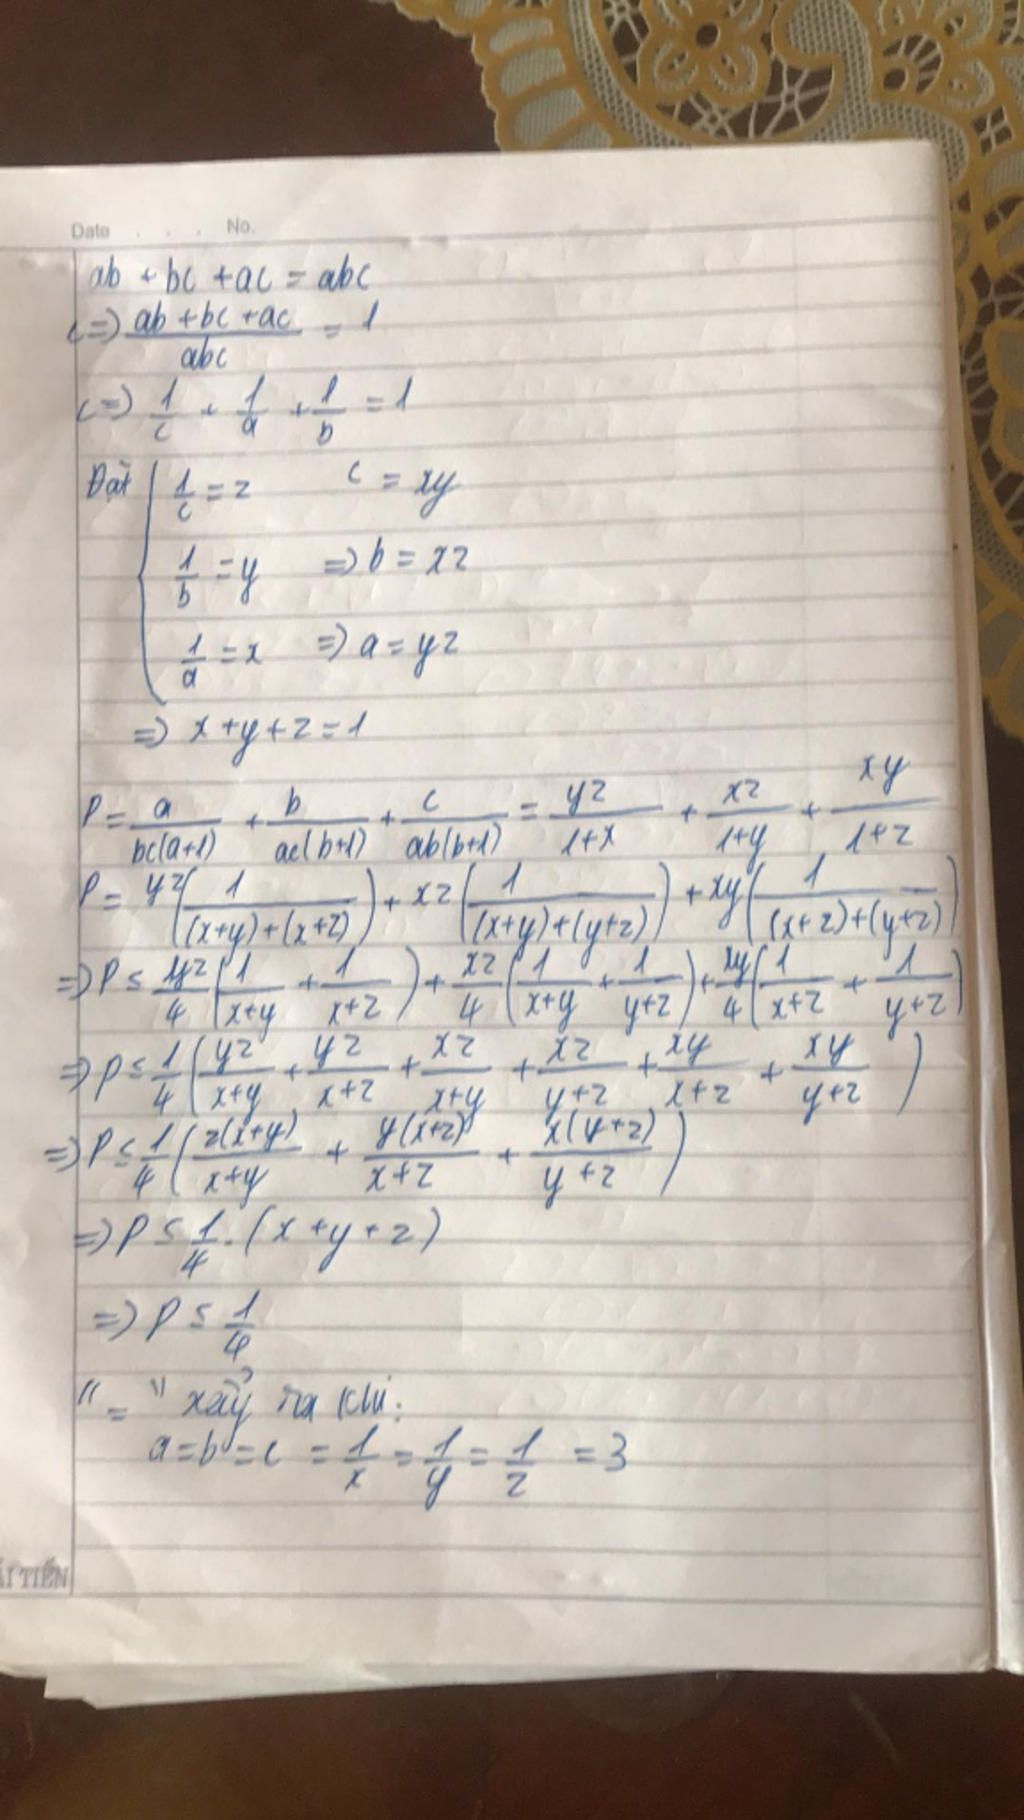 Date . . . No.
ab + bc + ac = abc
(=) (ab + bc + ac)/(abc) = 1
(=) 1/c + 1/a + 1/b = 1
Đặt { 1/c = z c = xy
1/b = y => b = xz
1/a = x => a = yz
=> x + y + z = 1
P = a/(bc(a+1)) + b/(ac(b+1)) + c/(ab(b+1)) = yz/(1+x) + xz/(1+y) + xy/(1+z)
P = yz(1/((x+y)+(x+z))) + xz(1/((x+y)+(y+z))) + xy(1/((x+z)+(y+z)))
=> P ≤ yz/4 (1/(x+y) + 1/(x+z)) + xz/4 (1/(x+y) + 1/(y+z)) + xy/4 (1/(x+z) + 1/(y+z))
=> P ≤ 1/4 (yz/(x+y) + yz/(x+z) + xz/(x+y) + xz/(y+z) + xy/(x+z) + xy/(y+z))
=> P ≤ 1/4 (z(x+y)/(x+y) + y(x+z)/(x+z) + x(y+z)/(y+z))
=> P ≤ 1/4 . (x + y + z)
=> P ≤ 1/4
" = " xảy ra khi:
a = b = c = 1/x = 1/y = 1/z = 3
TIẾN